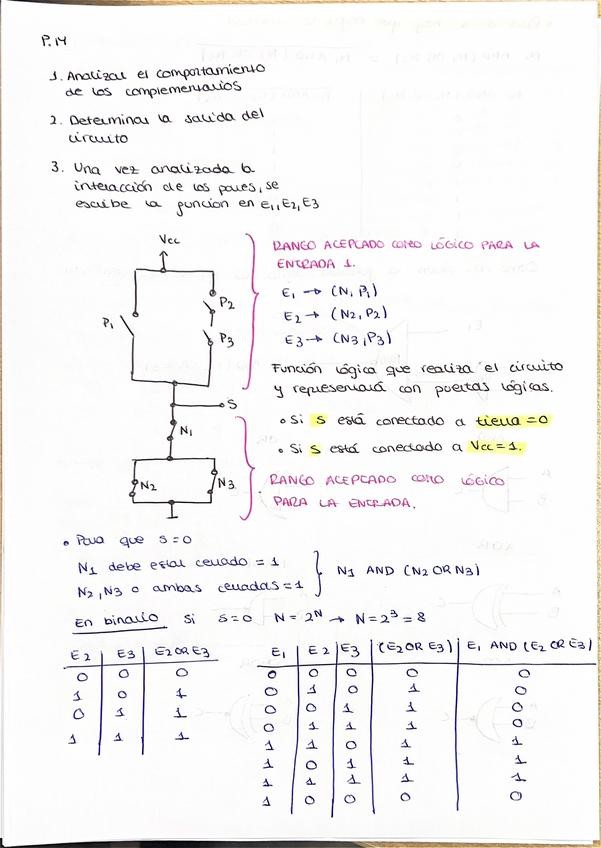 P.14
1. Analizar el comportamiento
de los complementarios
2. Determinar la salida del
circuito
3. Una vez analizada la
interacción de los pares, se
escribe la función en E1, E2, E3
Vcc
P1
P2
P3
S
N1
N2
N3
RANGO ACEPTADO COMO LÓGICO PARA LA
ENTRADA 1.
E1 → (N1 P1)
E2 → (N2, P2)
E3 → (N3, P3)
Función lógica que realiza el circuito
y representará con puertas lógicas.
• Si S está conectado a tierra = 0
• Si S está conectado a Vcc = 1.
RANGO ACEPTADO COMO LÓGICO
PARA LA ENTRADA.
• Para que S=0
N1 debe estar cerrado = 1
N2, N3 o ambas cerradas = 1
N1 AND (N2 OR N3)
En binario Si S=0 N = 2^N → N = 2^3 = 8
E2 E3 E2 OR E3
0 0 0
1 0 1
0 1 1
1 1 1
E1 E2 E3 (E2 OR E3) E1 AND (E2 OR E3)
0 0 0 0 0
0 1 0 1 0
0 0 1 1 0
0 1 1 1 0
1 1 0 1 1
1 0 1 1 1
1 1 1 1 1
1 0 0 0 0